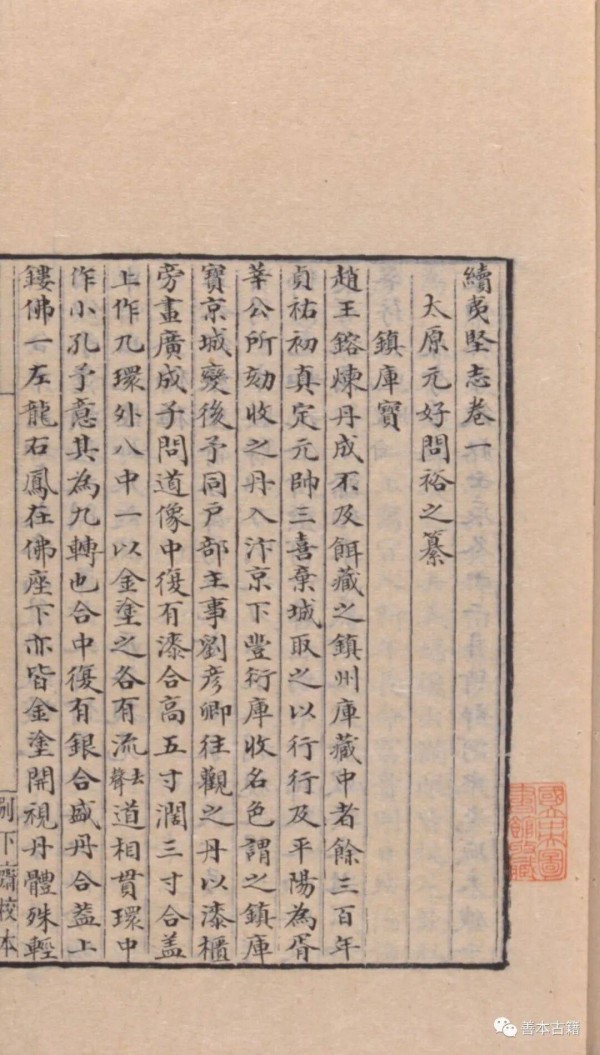 續夷堅志卷一
太原元好問裕之纂
鎮庫寶
趙王鎔煉丹成不及餌藏之鎮州庫藏中者餘三百年
貞祐初真定元帥三喜棄城取之以行行及平陽為胥
莘公所劾收之丹入汴京下豐衍庫收名色謂之鎮庫
寶京城變後予同戶部主事劉彥卿往觀之丹以漆櫃
旁畫廣成子問道像中復有漆合高五寸濶三寸合盖
上作九環外八中一以金塗之各有流去聲道相貫環中
作小孔予意其為九轉也合中復有銀合盛丹合葢上
鏤佛一左龍右鳳在佛座下亦皆金塗開視丹體殊輕
別下齋校本
善本古籍